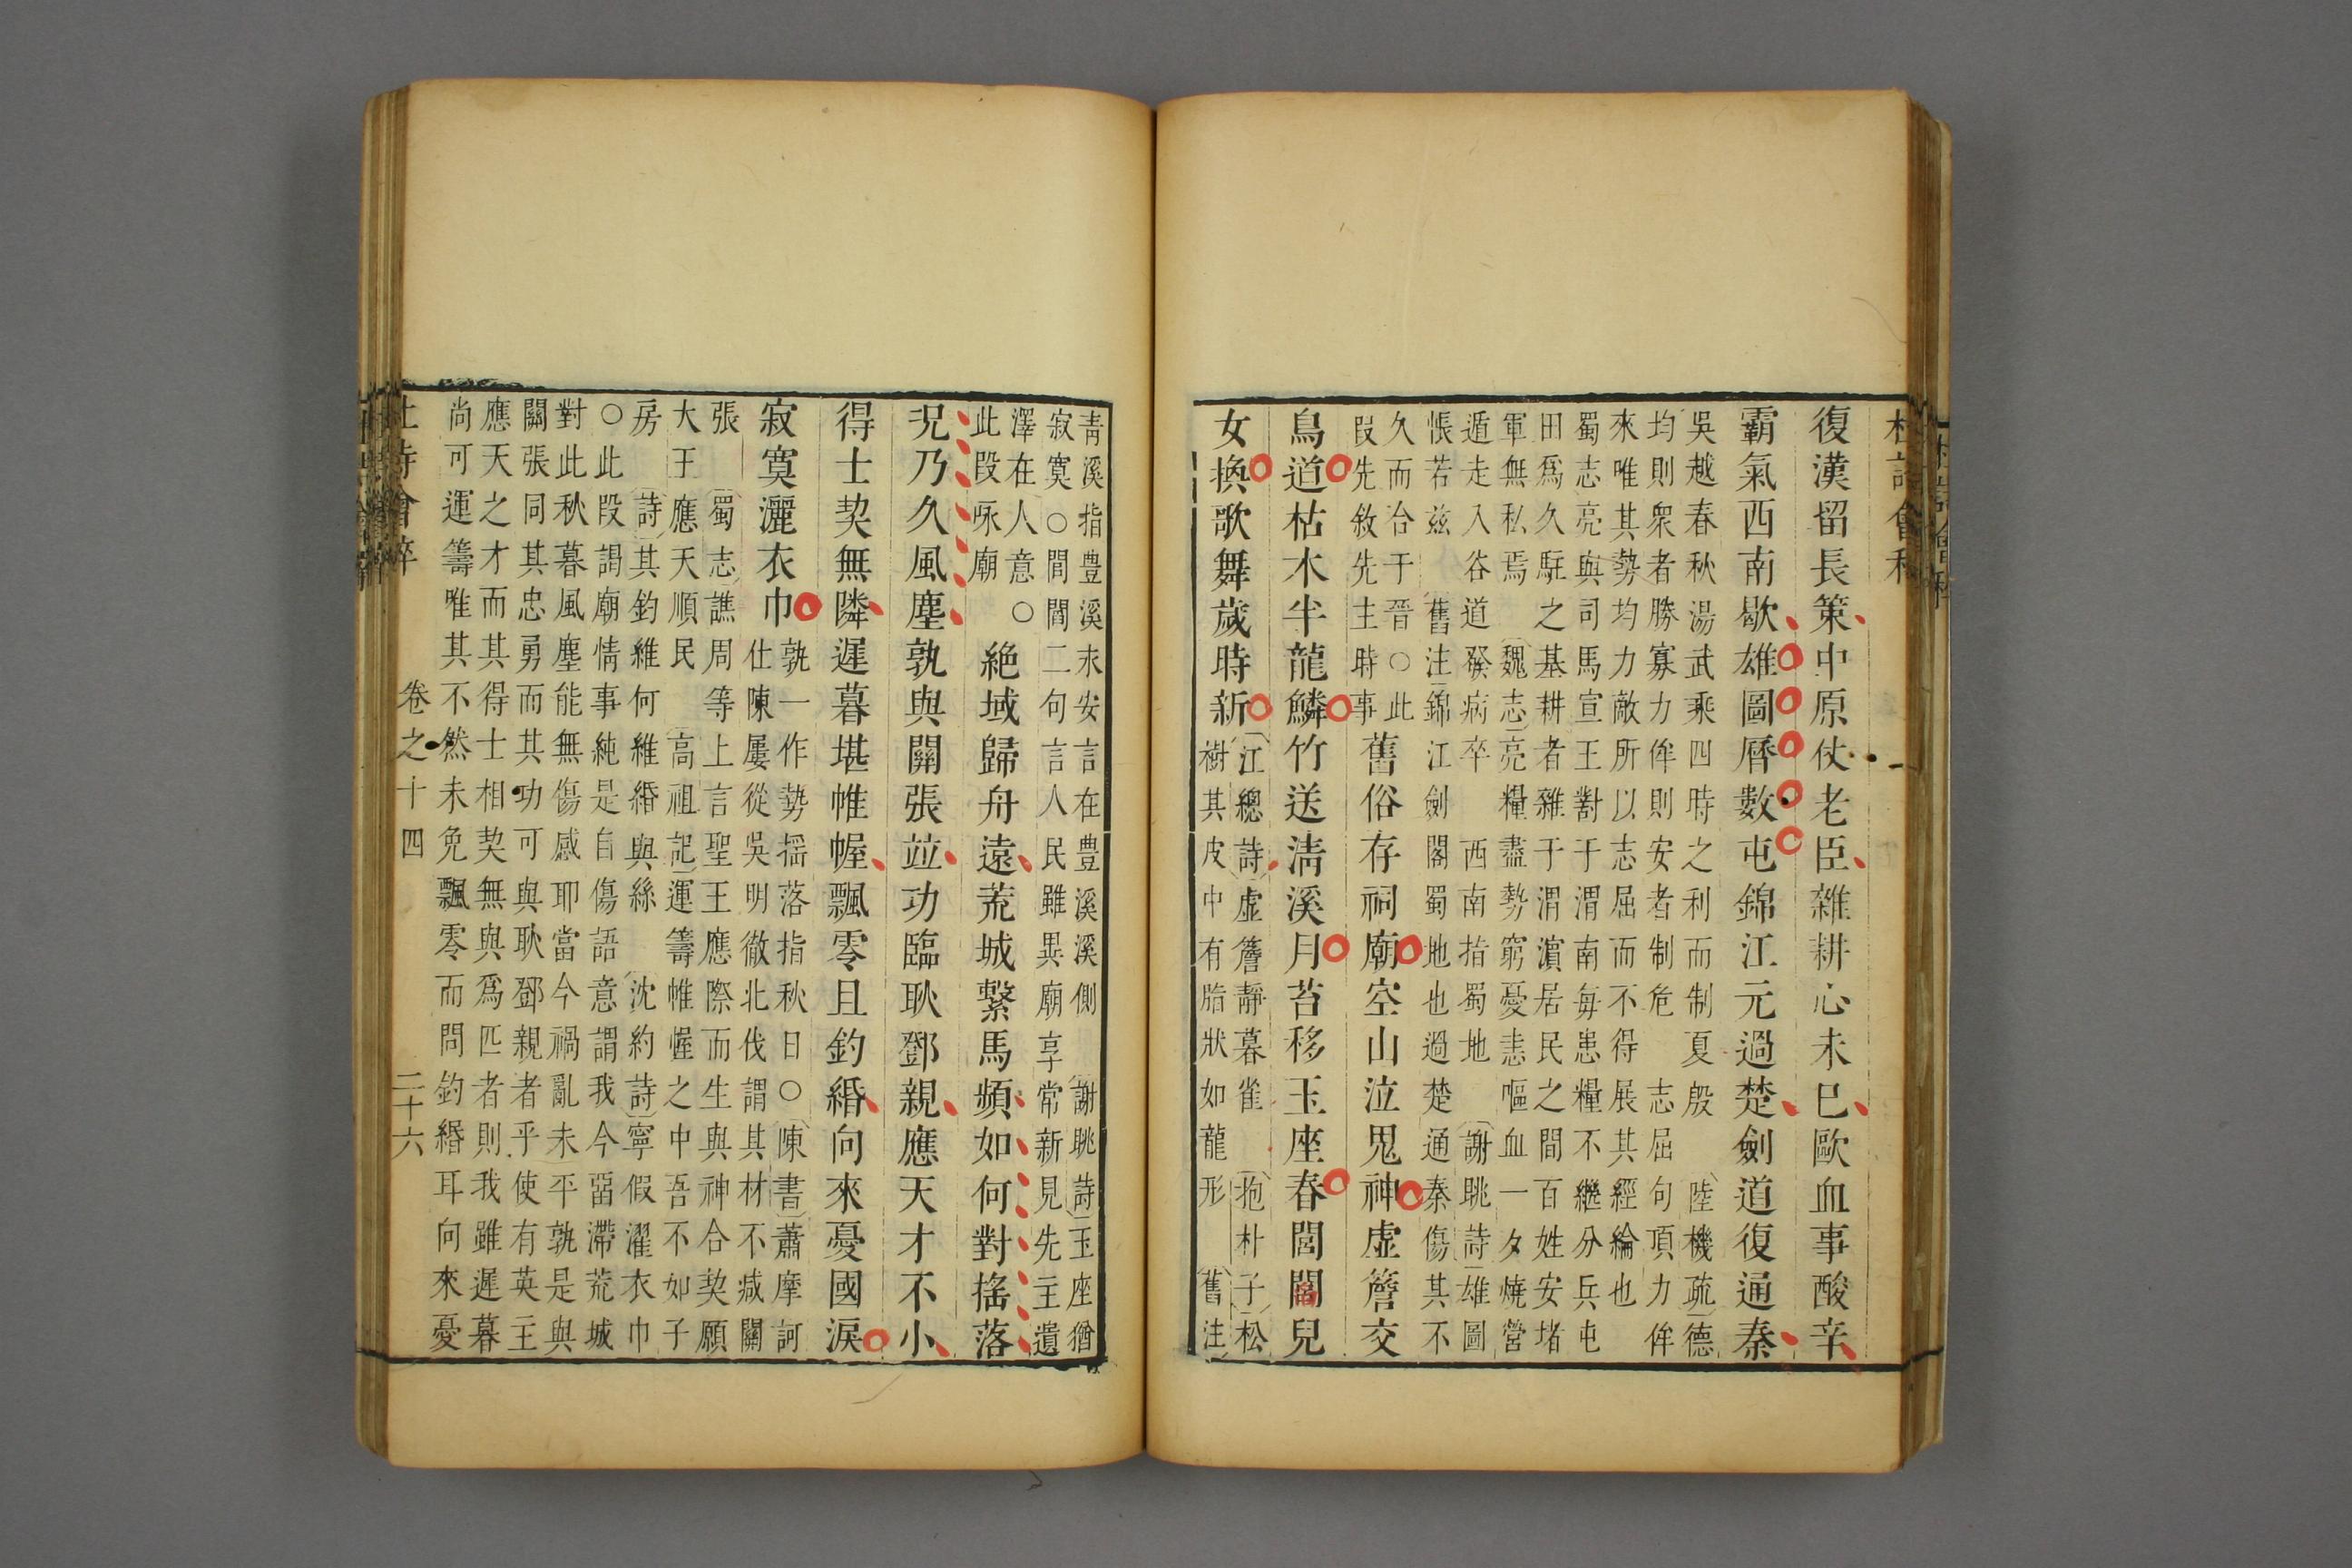 復漢留長策中原仗老臣雜耕心未已歐血事酸辛
霸氣西南歇雄圖曆數屯錦江元過楚劍道復通秦
吳越春秋湯武乘四時之利而制夏殷 陸機疏德
均則衆者勝寡力侔則安者制危 志屈句頂力侔
來唯其勢均力敵所以志屈而不得展其經綸也
蜀志亮與司馬宣王對于渭南每患糧不繼分兵屯
田爲久駐之基耕者雜于渭濵居民之間百姓安堵
軍無私焉 魏志亮糧盡勢窮憂恚嘔血一夕燒營
遁走入谷道發病卒 西南指蜀地 謝眺詩雄圖
悵若兹 舊注錦江劍閣蜀地也過楚通秦傷其不
久而合于晉○此
段先敘先主時事
舊俗存祠廟空山泣鬼神虚簷交
鳥道枯木半龍鱗竹送淸溪月苔移玉座春閭閻兒
女換歌舞歲時新
江總詩虛簷靜暮雀 抱朴子松
樹其皮中有脂狀如龍形 舊注
靑溪指豊溪末安言在豊溪溪側 謝眺詩玉座猶
寂寞○閭閻二句言人民雖異廟享常新見先主遺
澤在人意○
此段咏廟
絶域歸舟遠荒城繫馬頻如何對搖落
况乃久風塵孰與關張竝功臨耿鄧親應天才不小
得士契無隣遲暮堪帷幄飄零且釣緡向來憂國淚
寂寞灑衣巾
孰一作勢揺落指秋日○陳書蕭摩訶
仕陳屢從吳明徹北伐謂其材不減關
張 蜀志譙周等上言聖王應際而生與神合契願
大王應天順民 高祖記運籌帷幄之中吾不如子
房 詩其釣維何維緡與絲 沈約詩寧假濯衣巾
○此段謁廟情事純是自傷語意謂我今留滯荒城
對此秋暮風塵能無傷感耶當今禍亂未平孰是與
關張同其忠勇而其功可與耿鄧親者乎使有英主
應天之才而其得士相契無與爲匹者則我雖遲暮
尚可運籌唯其不然未免飄零而問釣緡耳向來憂
卷之十四 二十六